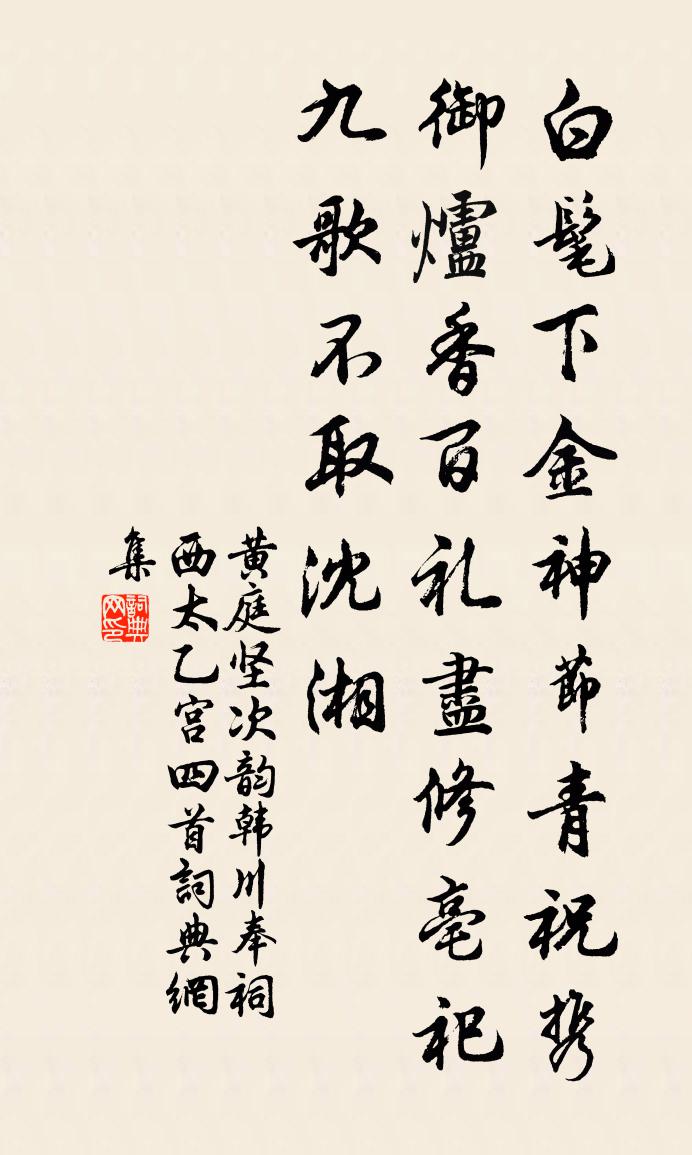 白髦下金神節青祝携
御爐香百礼盡修亳祀
九歌不取沈湘
黄庭坚次韵韩川奉祠
西太乙宫四首詞典網
集
詞典网印